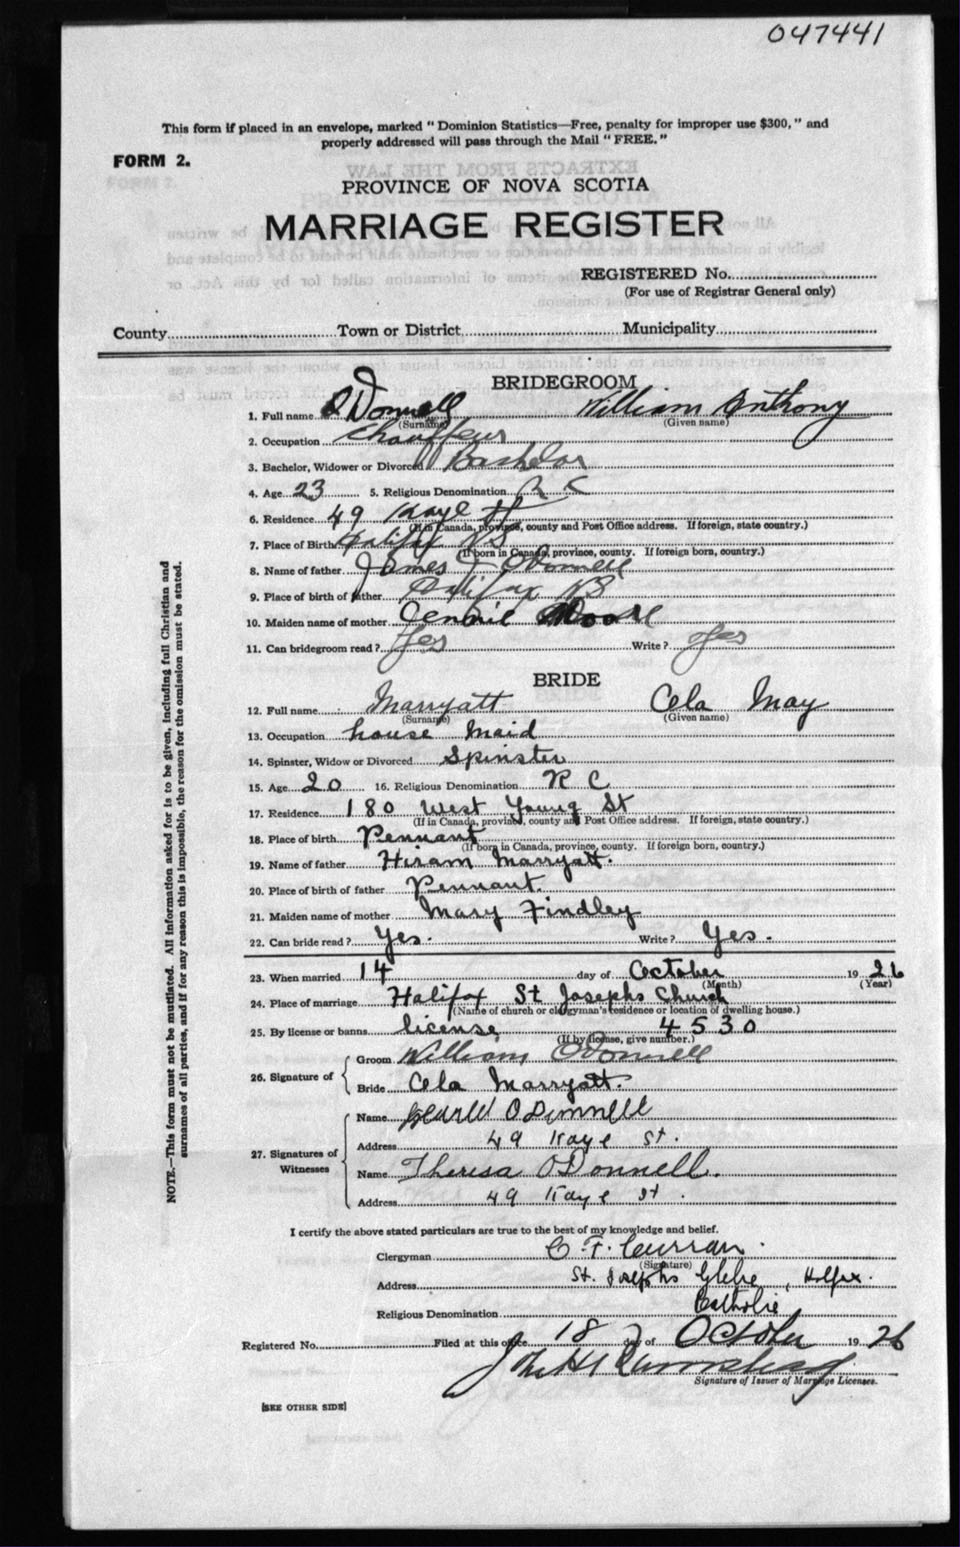 047441
This form if placed in an envelope, marked "Dominion Statistics—Free, penalty for improper use $300," and
properly addressed will pass through the Mail "FREE."
FORM 2.
PROVINCE OF NOVA SCOTIA
MARRIAGE REGISTER
REGISTERED No.
(For use of Registrar General only)
County Town or District Municipality
BRIDEGROOM
1. Full name O'Donnell William Anthony
(Surname) (Given name)
2. Occupation Chauffeur
3. Bachelor, Widower or Divorced Bachelor
4. Age 23 5. Religious Denomination R C
6. Residence 49 Kaye St
(If in Canada, province, county and Post Office address. If foreign, state country.)
7. Place of Birth Halifax NS
(If born in Canada, province, county. If foreign born, country.)
8. Name of father James J O'Donnell
9. Place of birth of father Halifax NS
10. Maiden name of mother Jennie Moore
11. Can bridegroom read? Yes Write? Yes
BRIDE
12. Full name Marryatt Cela May
(Surname) (Given name)
13. Occupation house Maid
14. Spinster, Widow or Divorced Spinster
15. Age 20 16. Religious Denomination R C
17. Residence 180 West Young St
(If in Canada, province, county and Post Office address. If foreign, state country.)
18. Place of birth Pennant
(If born in Canada, province, county. If foreign born, country.)
19. Name of father Hiram Marryatt.
20. Place of birth of father Pennant.
21. Maiden name of mother Mary Findley
22. Can bride read? Yes. Write? Yes.
23. When married 14 day of October 1926
(Month) (Year)
24. Place of marriage Halifax St Josephs Church
(Name of church or clergyman's residence or location of dwelling house.)
25. By license or banns license 4530
(If by license, give number.)
26. Signature of Groom William O'Donnell
Bride Cela Marryatt.
27. Signatures of Witnesses Name O'Donnell
Address 49 Kaye St.
Name Theresa O'Donnell.
Address 49 Kaye St.
I certify the above stated particulars are true to the best of my knowledge and belief.
Clergyman C. F. Curran.
(Signature)
Address St. Josephs Glebe, Hlfx.
Religious Denomination Catholic
Registered No. Filed at this office 18 day of October 1926
Signature of Issuer of Marriage Licenses.
[SEE OTHER SIDE]
NOTE.—This form must not be mutilated. All information asked for is to be given, including full Christian and
surnames of all parties, and if for any reason this is impossible, the reason for the omission must be stated.